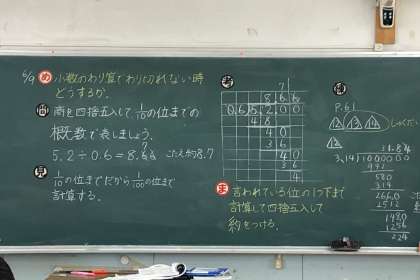 6/9 め 小数のわり算でわり切れない時
どうするか。
問 商を四捨五入して、1/10の位までの
概数で表しましょう。
5.2÷0.6=8.66 こたえ 約8.7
7
見 1/10の位までだから 1/100の位まで
計算する。
考
7
8.66
0.6 5.2.00
48
40
36
40
36
4
ま 言われている位の1つ下まで
計算して四捨五入して
約をつける。
P.61
12 13 14
31.84
3.14 100.00.00
942
580
314
2660
2512
1480
1256
224